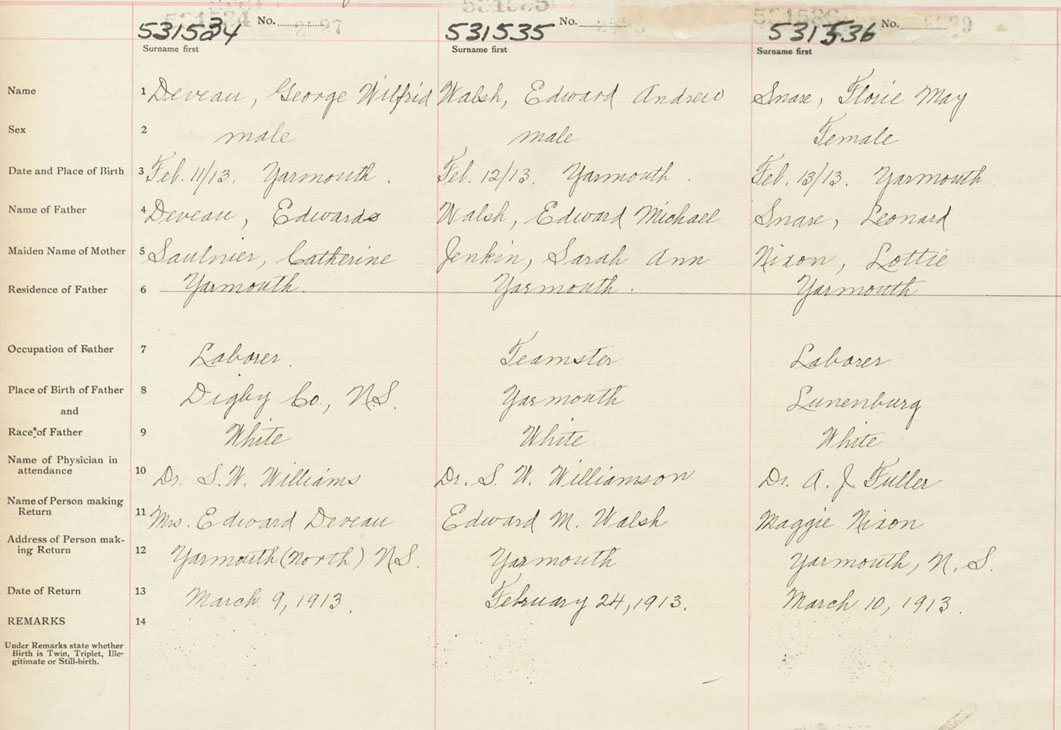 531534 No. 531535 No. 531536 No.
Surname first Surname first Surname first
Name 1 Deveau, George Wilfrid Walsh, Edward Andrew Snare, Florie May
Sex 2 male male Female
Date and Place of Birth 3 Feb. 11/13. Yarmouth. Feb. 12/13. Yarmouth. Feb. 13/13. Yarmouth
Name of Father 4 Deveau, Edward Walsh, Edward Michael Snare, Leonard
Maiden Name of Mother 5 Saulnier, Catherine Jenkin, Sarah Ann Nixon, Lottie
Residence of Father 6 Yarmouth. Yarmouth. Yarmouth
Occupation of Father 7 Laborer. Teamster Laborer
Place of Birth of Father 8 Digby Co., N.S. Yarmouth Lunenburg
and
Race of Father 9 White White White
Name of Physician in
attendance 10 Dr. S. W. Williams Dr. S. W. Williamson Dr. A. J Fuller
Name of Person making
Return 11 Mrs. Edward Deveau Edward M. Walsh Maggie Nixon
Address of Person mak-
ing Return 12 Yarmouth (North) N.S. Yarmouth Yarmouth, N. S.
Date of Return 13 March 9, 1913. February 24, 1913. March 10, 1913.
REMARKS 14
Under Remarks state whether
Birth is Twin, Triplet, Ille-
gitimate or Still-birth.